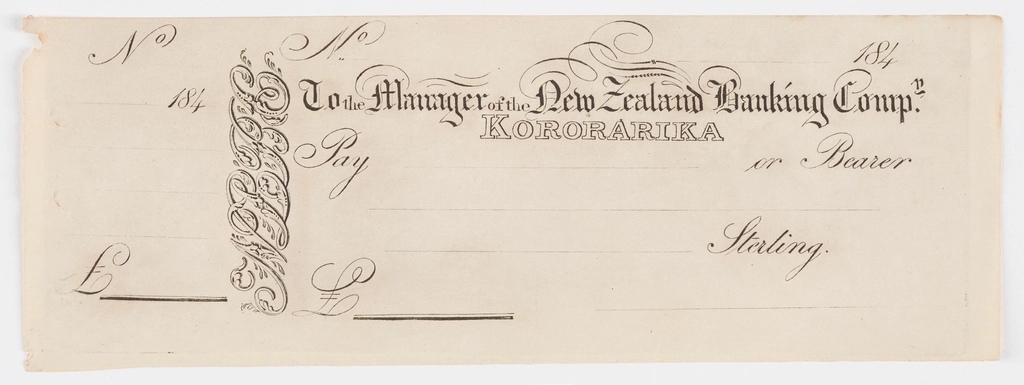 No
184
£
No
184
To the Manager of the New Zealand Banking Compy.
KORORARIKA
Pay or Bearer
Sterling.
£